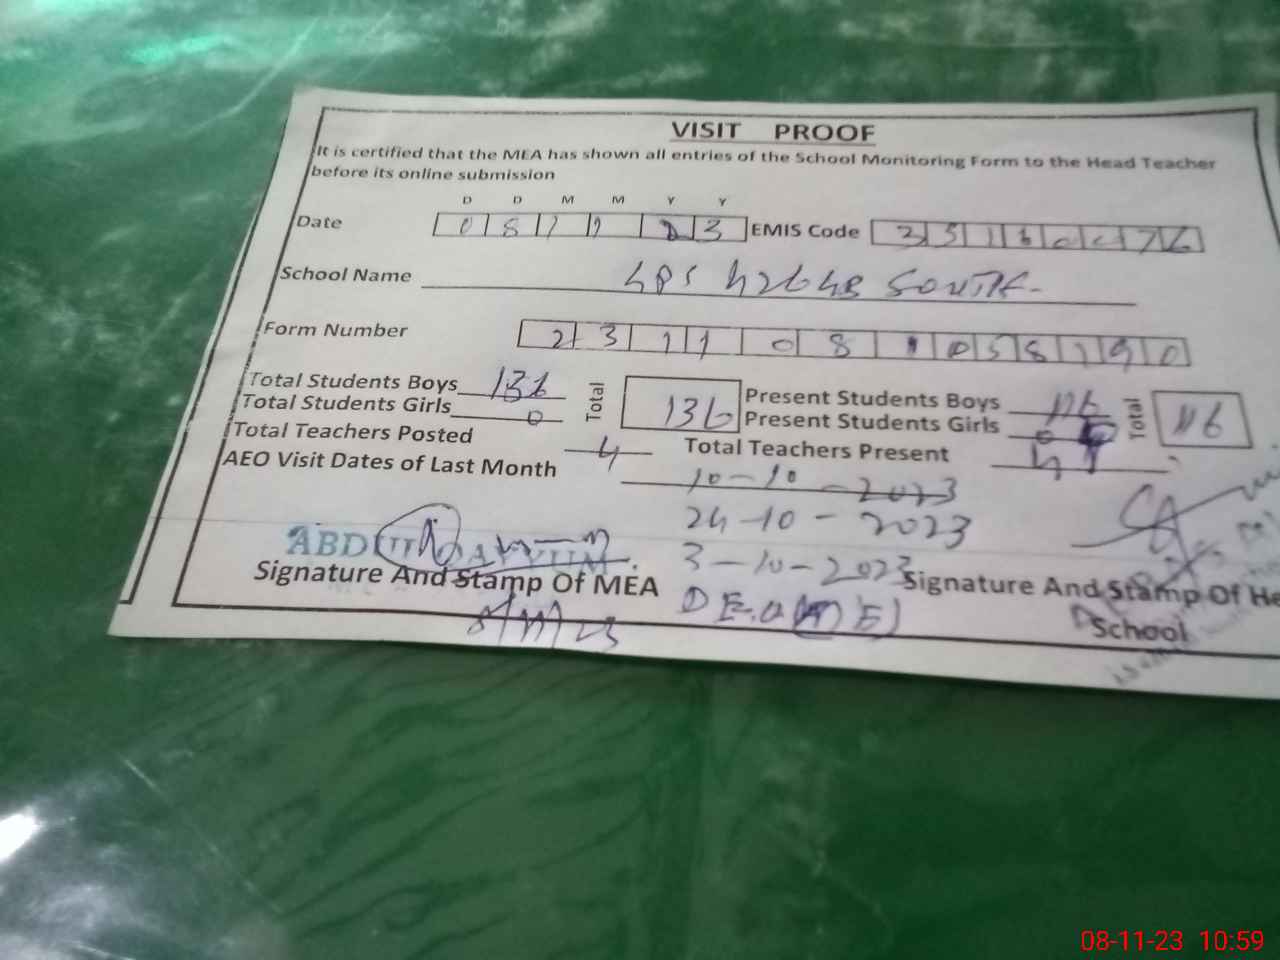 VISIT PROOF
It is certified that the MEA has shown all entries of the School Monitoring Form to the Head Teacher
before its online submission
D D M M Y Y
Date 0 8 1 1 2 3 EMIS Code
School Name GPS
Form Number 2 3 1 1 0 8 1 0 5 8 1 9 0
Total Students Boys 136 Total 136 Present Students Boys 116 Total 116
Total Students Girls 0 Present Students Girls 0
Total Teachers Posted 4 Total Teachers Present 4
AEO Visit Dates of Last Month 10-10-2023
24-10-2023
3-10-2023
ABDUL QAYYUM
Signature And Stamp Of MEA Signature And Stamp Of He
School
08-11-23 10:59